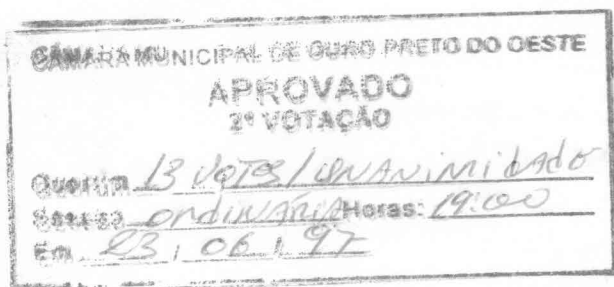 CÂMARA MUNICIPAL DE OURO PRETO DO OESTE
APROVADO
2ª VOTAÇÃO
Quorum 13 VOTOS / UNANIMIDADE
Sessão ordinária Horas: 19:00
Em 23 / 06 / 97